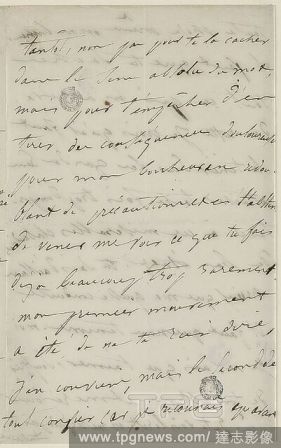 tantôt, non pas pour te la cacher
dans le sens absolu du mot,
mais pour t'empêcher d'en
tirer des conséquences douloureuses
pour mon bonheur en redou-
blant de précautions et en
de venir me voir ce que tu fais
déjà beaucoup trop rarement.
mon premier mouvement
a été de ne te rien dire,
j'en conviens, mais le second de
tout confier car je reconnais
www.tpgnews.com/ 達志影像